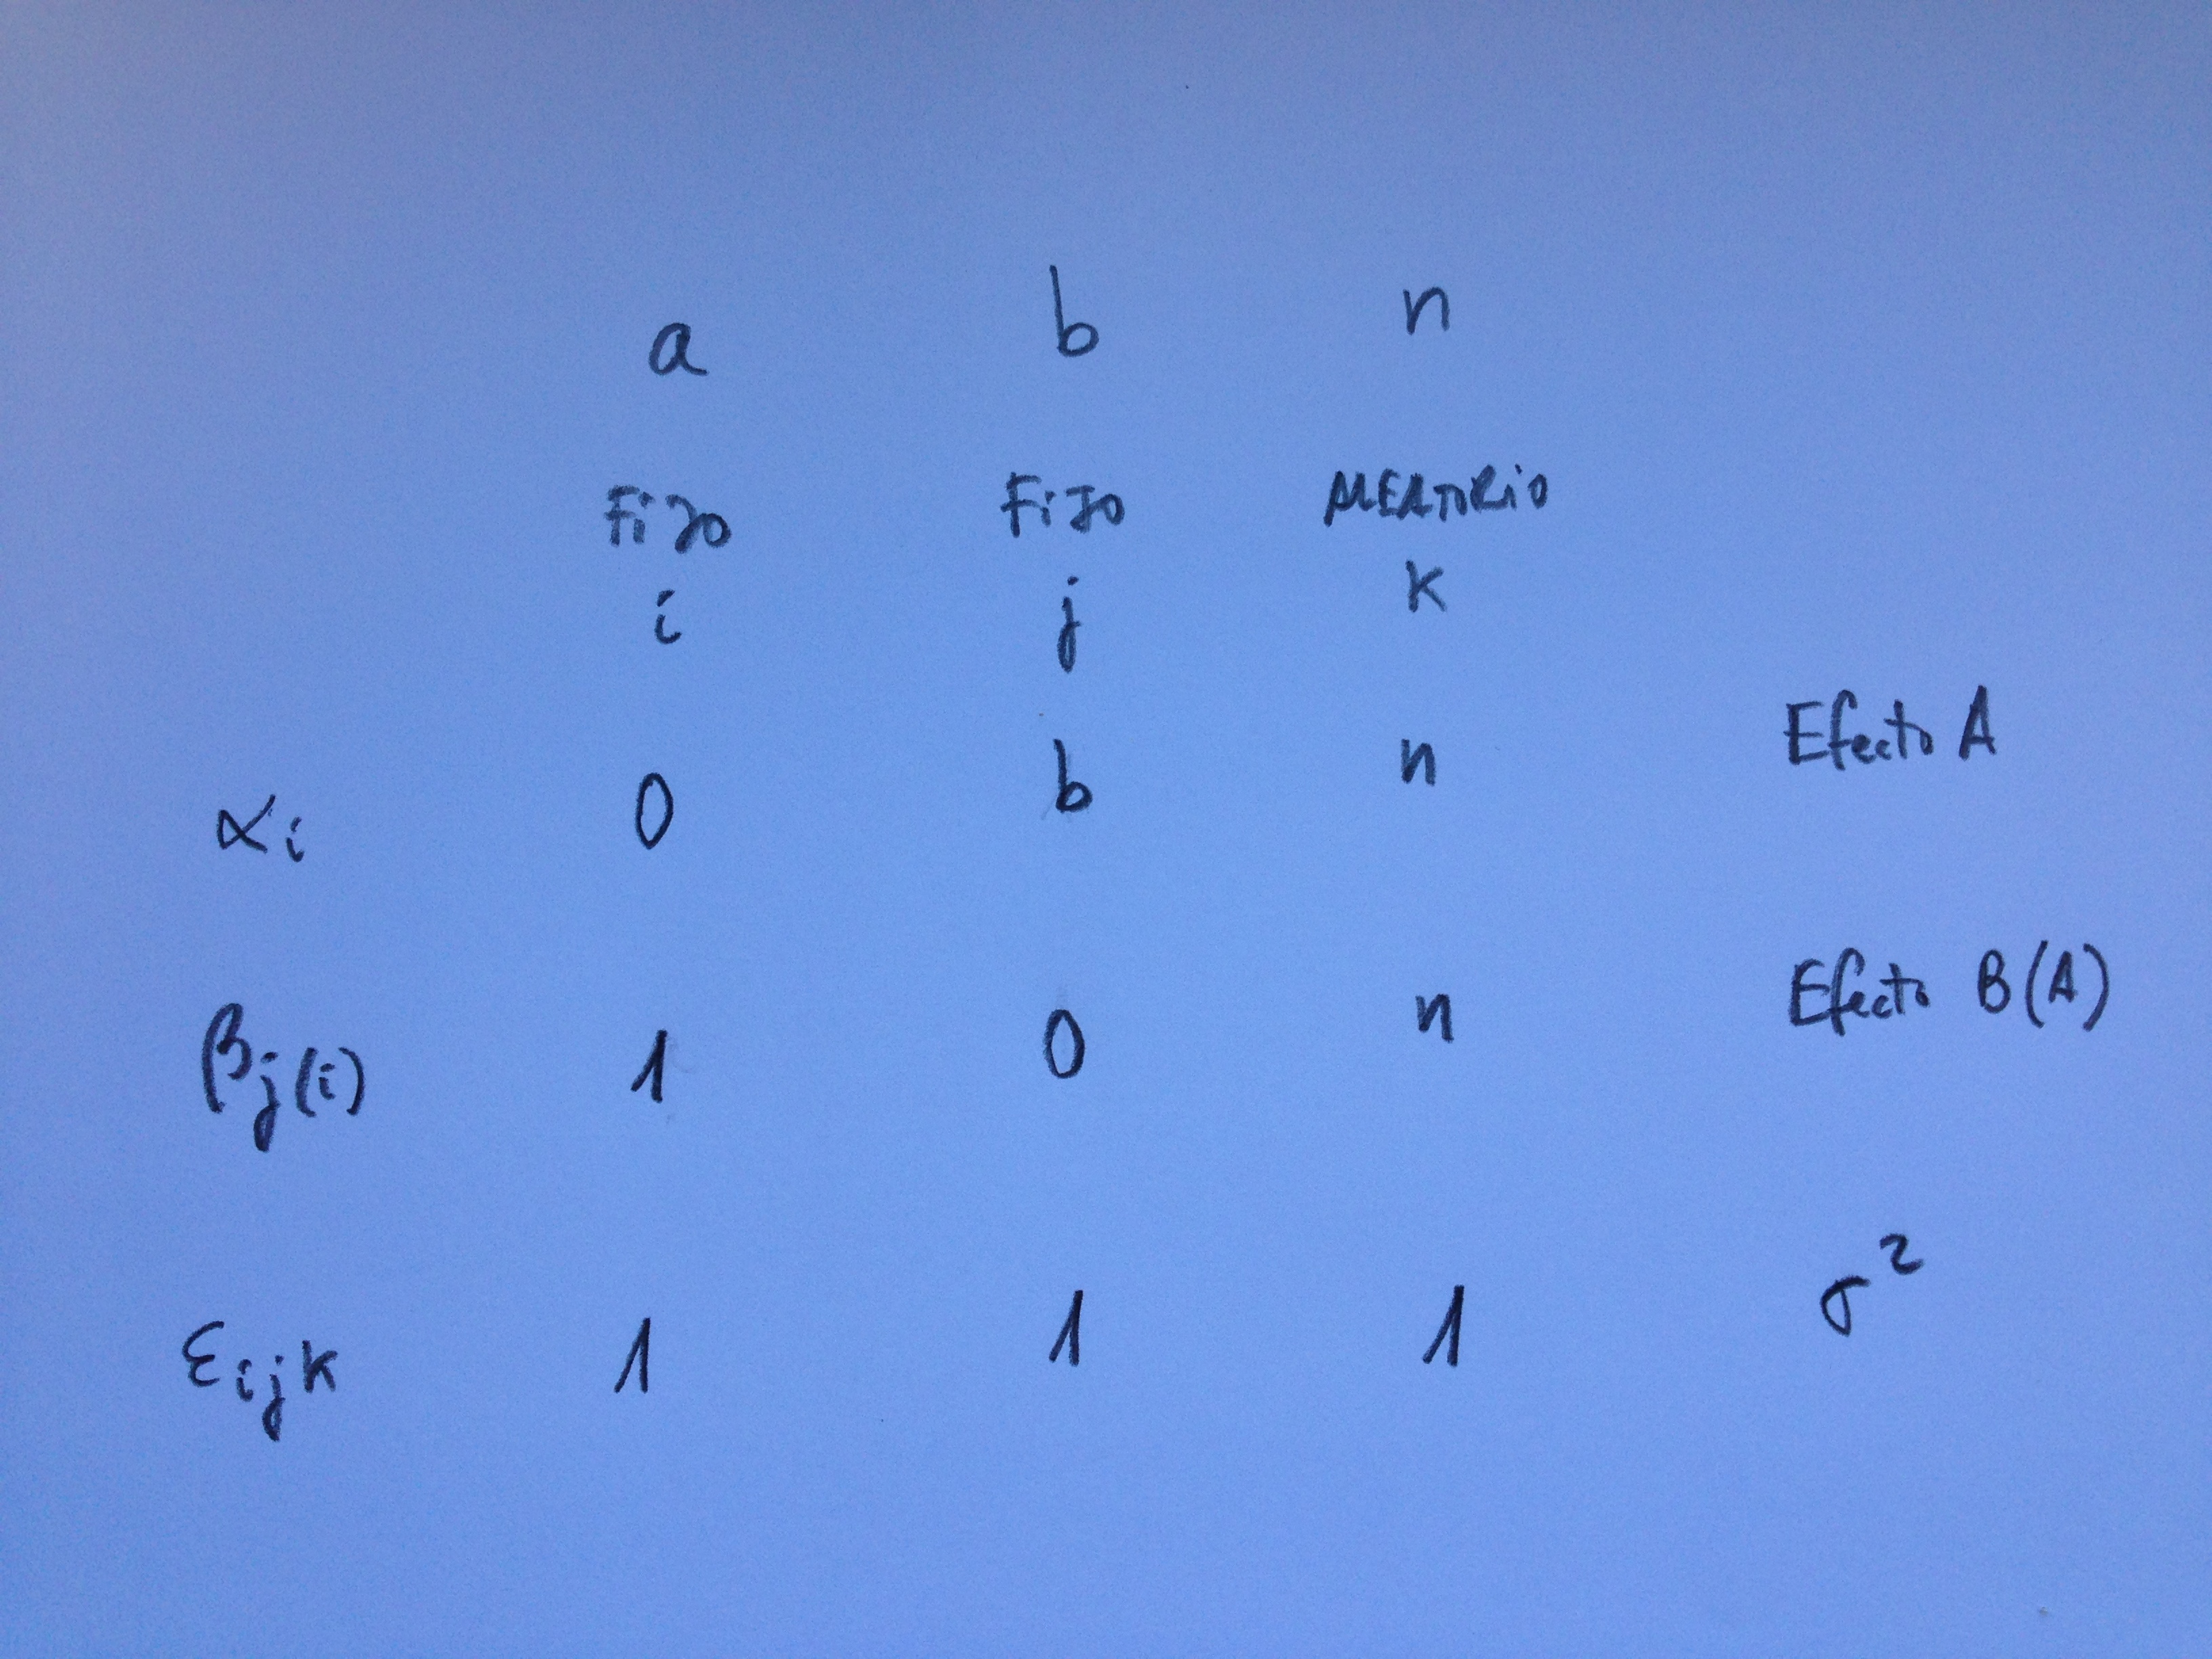 a b n
Fijo Fijo ALEATORIO
i j k
αi 0 b n Efecto A
βj(i) 1 0 n Efecto B(A)
εijk 1 1 1 σ²